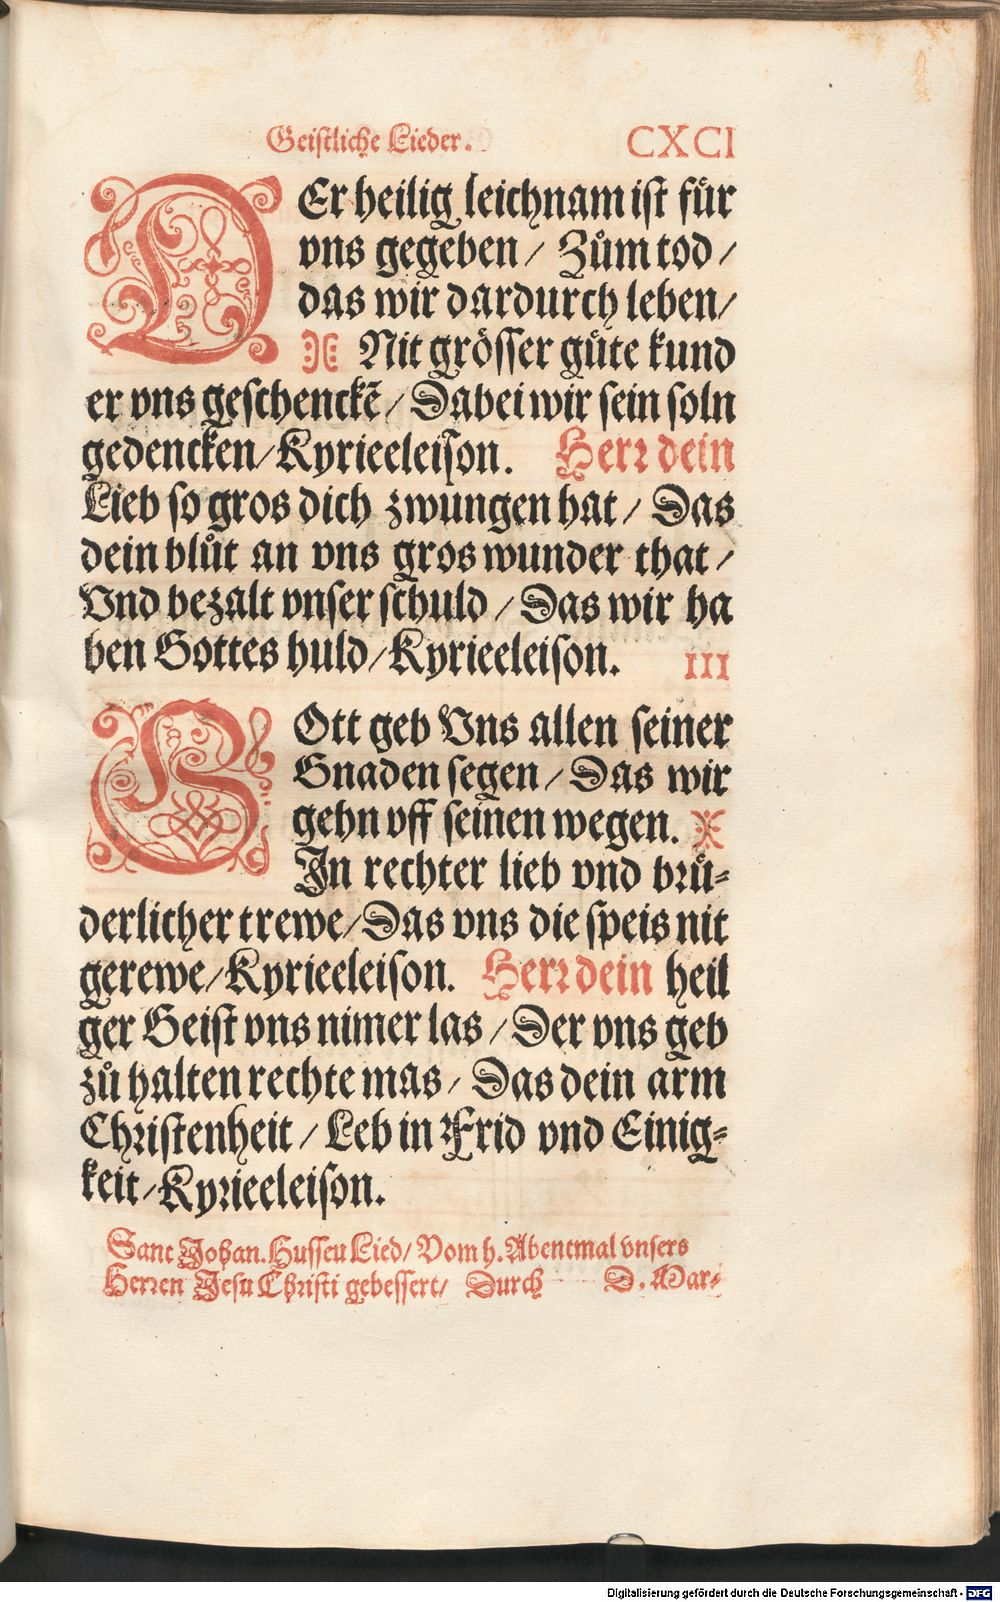 Geistliche Lieder. CXCI
DEr heilig leichnam ist fuͤr
vns gegeben / Zům tod /
das wir dardurch leben /
Nit grösser guͤte kund
er vns geschenckẽ / Dabei wir sein soln
gedencken / Kyrieeleison. Herr dein
Lieb so gros dich zwungen hat / Das
dein blůt an vns gros wunder that /
Vnd bezalt vnser schuld / Das wir ha
ben Gottes huld / Kyrieeleison. III
GOtt geb Vns allen seiner
Gnaden segen / Das wir
gehn vff seinen wegen.
In rechter lieb vnd bruͤ-
derlicher trewe / Das vns die speis nit
gerewe / Kyrieeleison. Herr dein heil
ger Geist vns nimer las / Der vns geb
zů halten rechte mas / Das dein arm
Christenheit / Leb in Frid vnd Einig-
keit / Kyrieeleison.
Sanc Johan. Hussen Lied / Vom h. Abentmal vnsers
Herren Jesu Christi gebessert / Durch D. Mar-
Digitalisierung gefördert durch die Deutsche Forschungsgemeinschaft - DFG